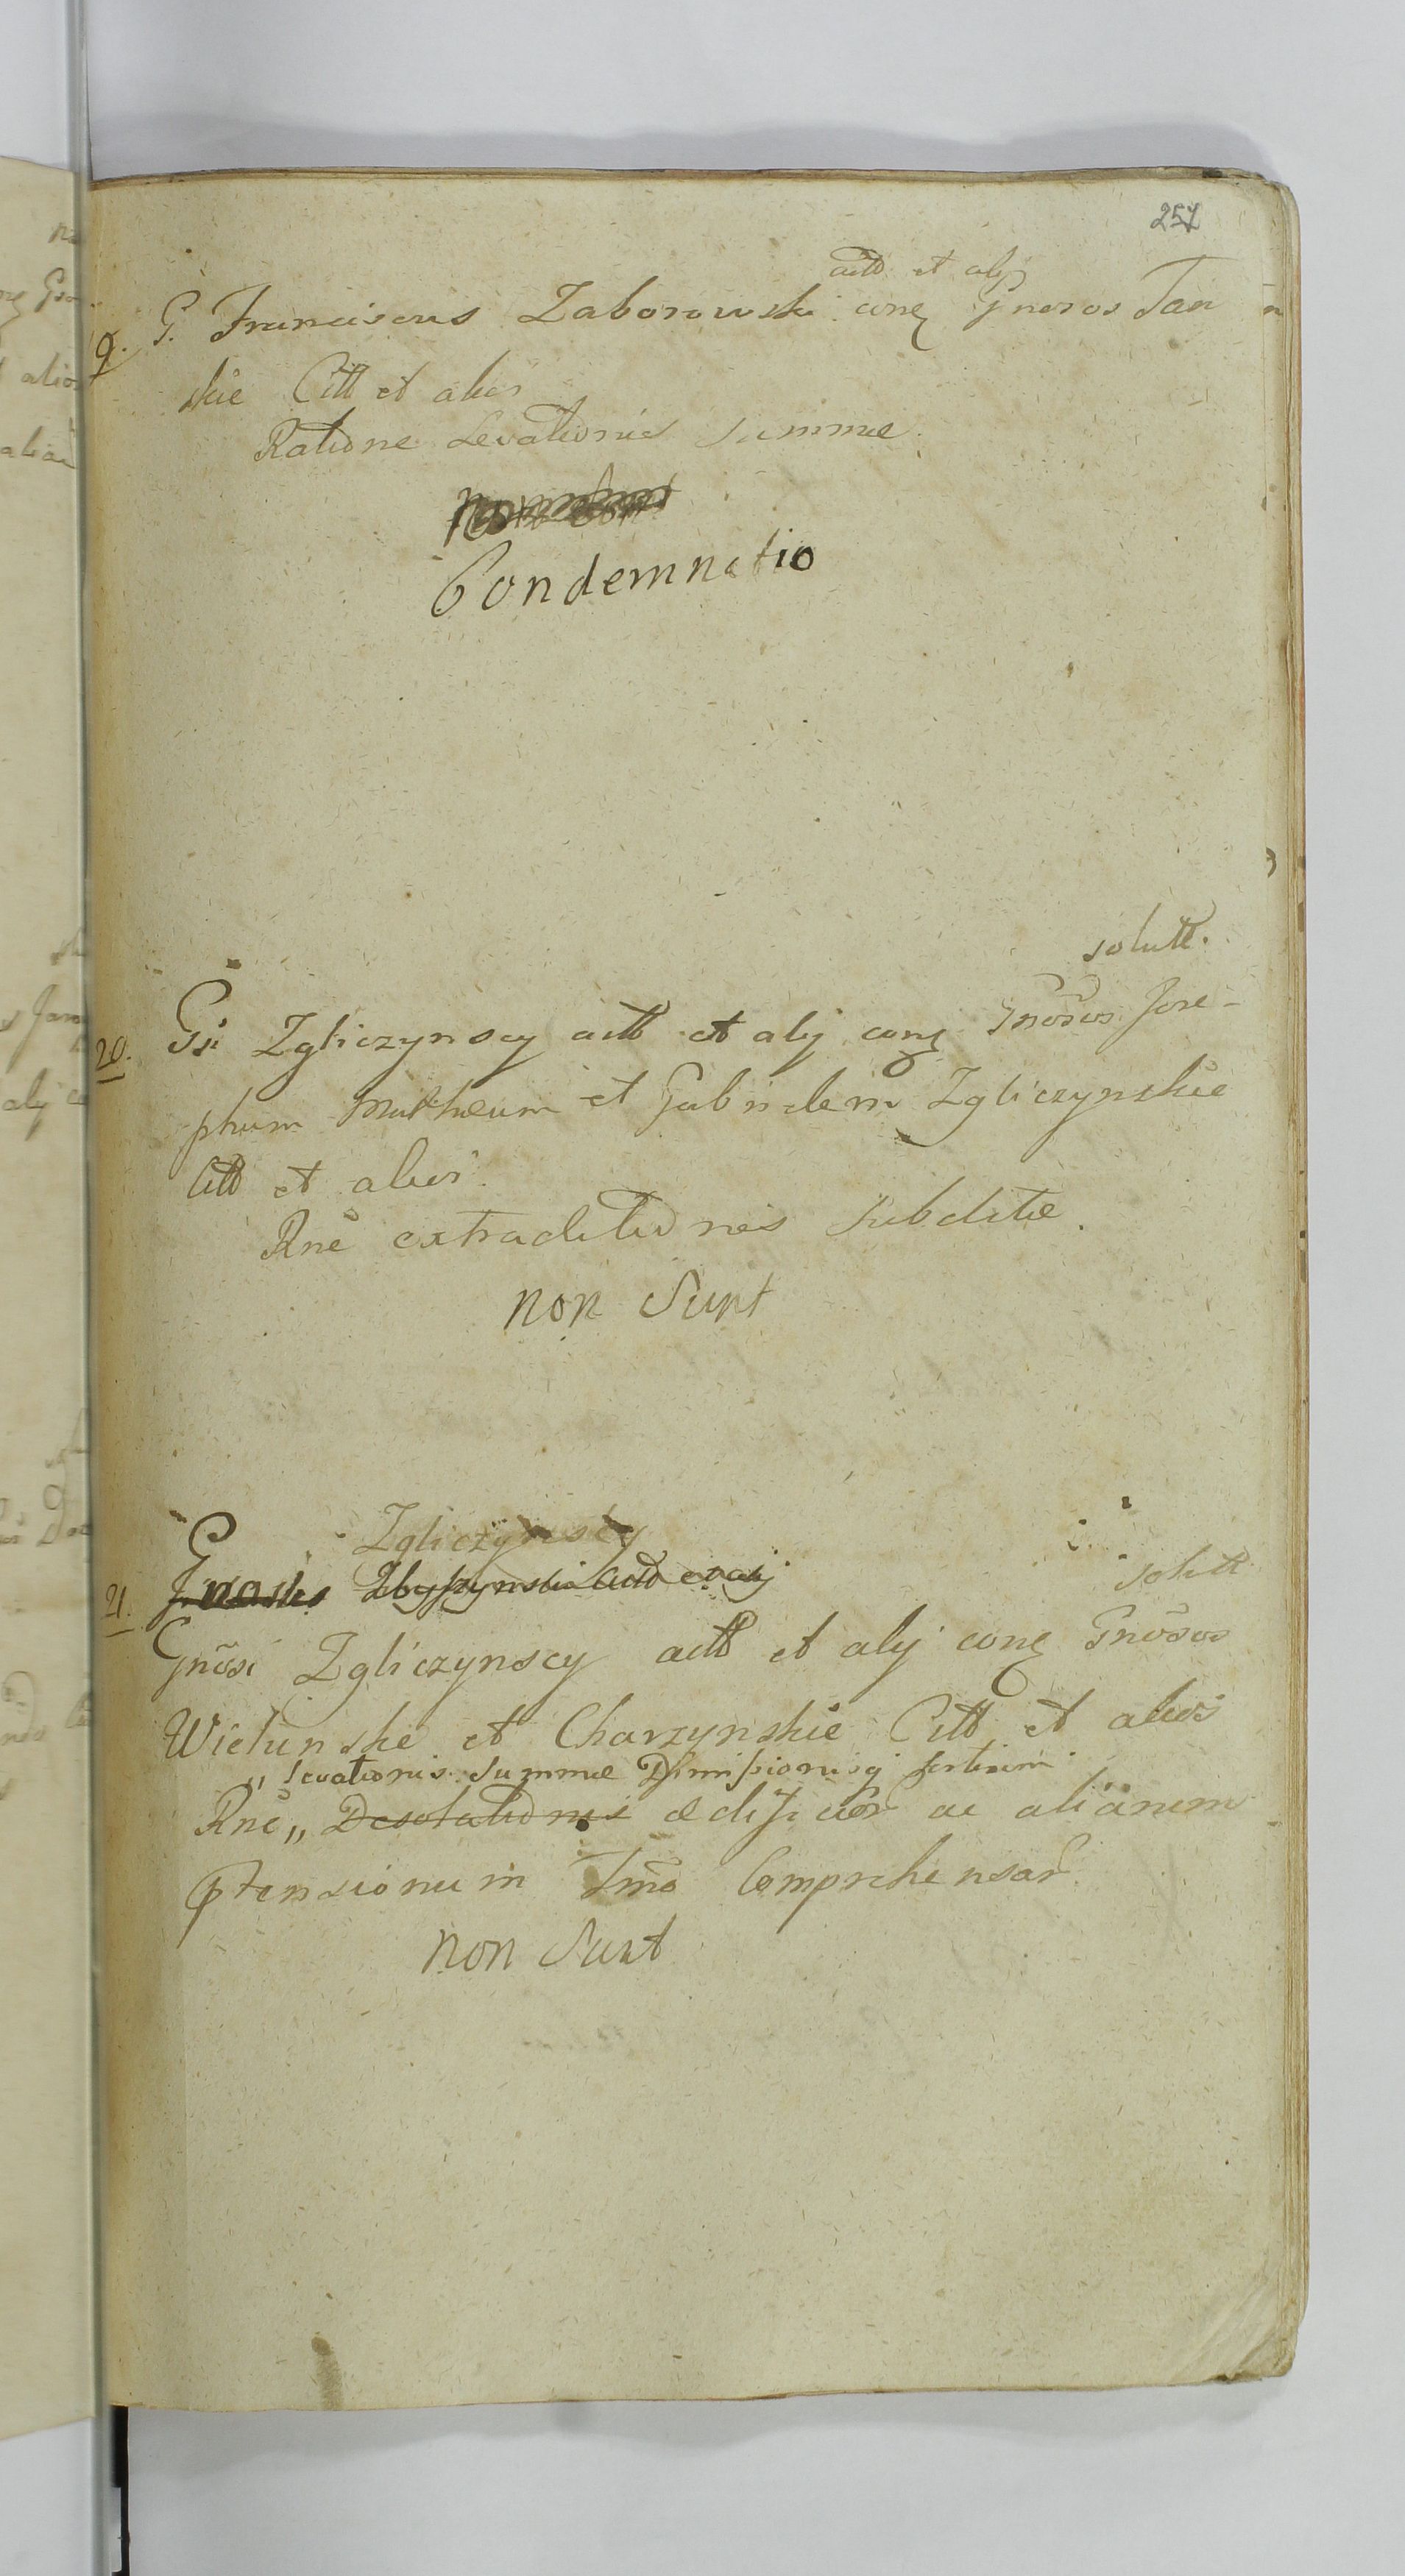 257
actt et alij
9. G. Franciscus Zaborowski conq Gneros Jan
skie Citt et alios
Ratione Levationis Summe.
Condemnatio
solutt.
20. Gsi Zgliczynscy actt et alij conq Gnosos Jose-
phum Matheum et Gabrielem Zgliczynskie
Citt et alios.
Rne extraditionis Subditae.
non Sunt
Zgliczynscy
solutt
21.
Gnosi Zgliczynscy actt et alij conq Gnosos
Wielunskie et Charzynskie Citt et alios
„ levationis Summe Dimissionisq
Rne „ Desolationis aedificior ac aliarum
ptensionum Tmo Comprehensar.
non Sunt